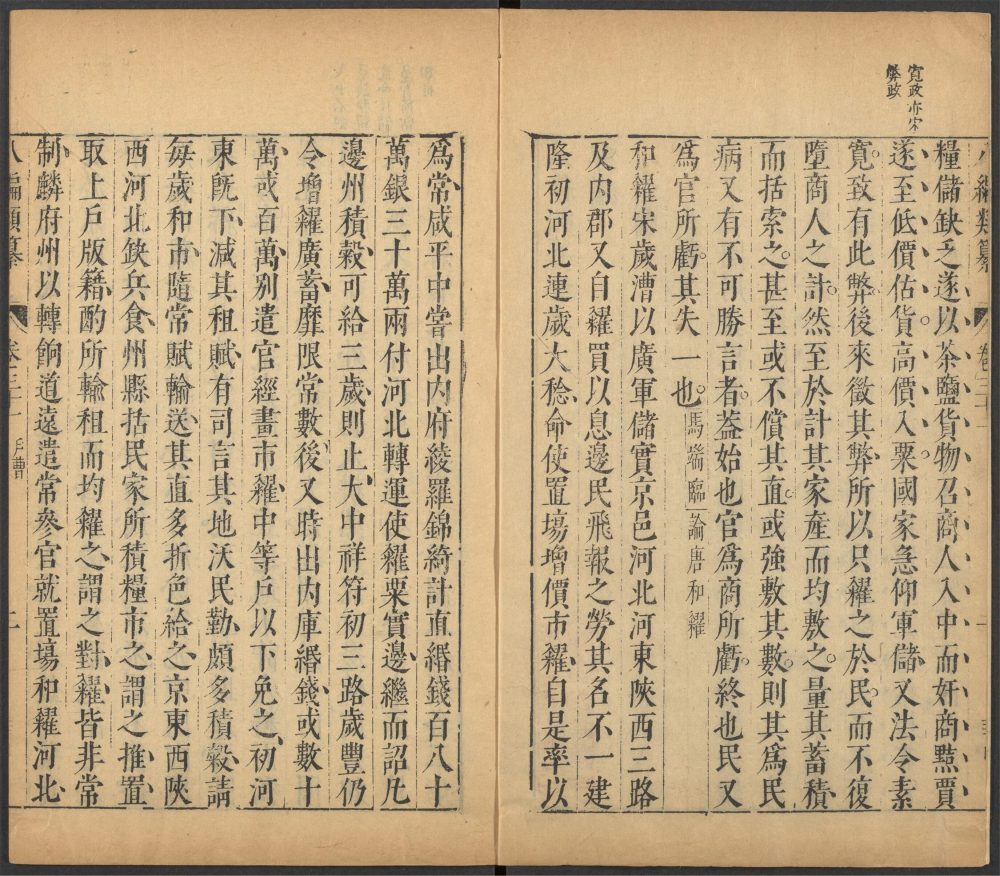 寬政亦宋
弊政
八編類纂 卷三
糧儲缺乏遂以茶鹽貨物召商人入中而奸商黠賈
遂至低價估貨高價入粟國家急仰軍儲又法令素
寬致有此弊後來徵其弊所以只糴之於民而不復
墮商人之計然至於計其家產而均敷之量其蓄積
而括索之甚至或不償其直或強敷其數則其爲民
病又有不可勝言者葢始也官爲商所虧終也民又
爲官所虧其失一也馬端臨論唐和糴
和糴宋歲漕以廣軍儲實京邑河北河東陝西三路
及内郡又自糴買以息邊民飛報之勞其名不一建
隆初河北連歲大稔命使置塲增價市糴自是率以
爲常咸平中嘗出内府綾羅錦綺計直緡錢百八十
萬銀三十萬兩付河北轉運使糴粟實邊繼而詔凡
邊州積糓可給三歲則止大中祥符初三路歲豐仍
令增糴廣蓄靡限常數後又時出内庫緡錢或數十
萬或百萬别遣官經畫市糴中等戶以下免之初河
東旣下減其租賦有司言其地沃民勤頗多積糓請
每歲和市隨常賦輸送其直多折色給之京東西陝
西河北缺兵食州縣括民家所積糧市之謂之推置
取上戶版籍酌所輸租而均糴之謂之對糴皆非常
制麟府州以轉餉道遠遣常參官就置塲和糴河北
八編類纂 卷三 戶曹